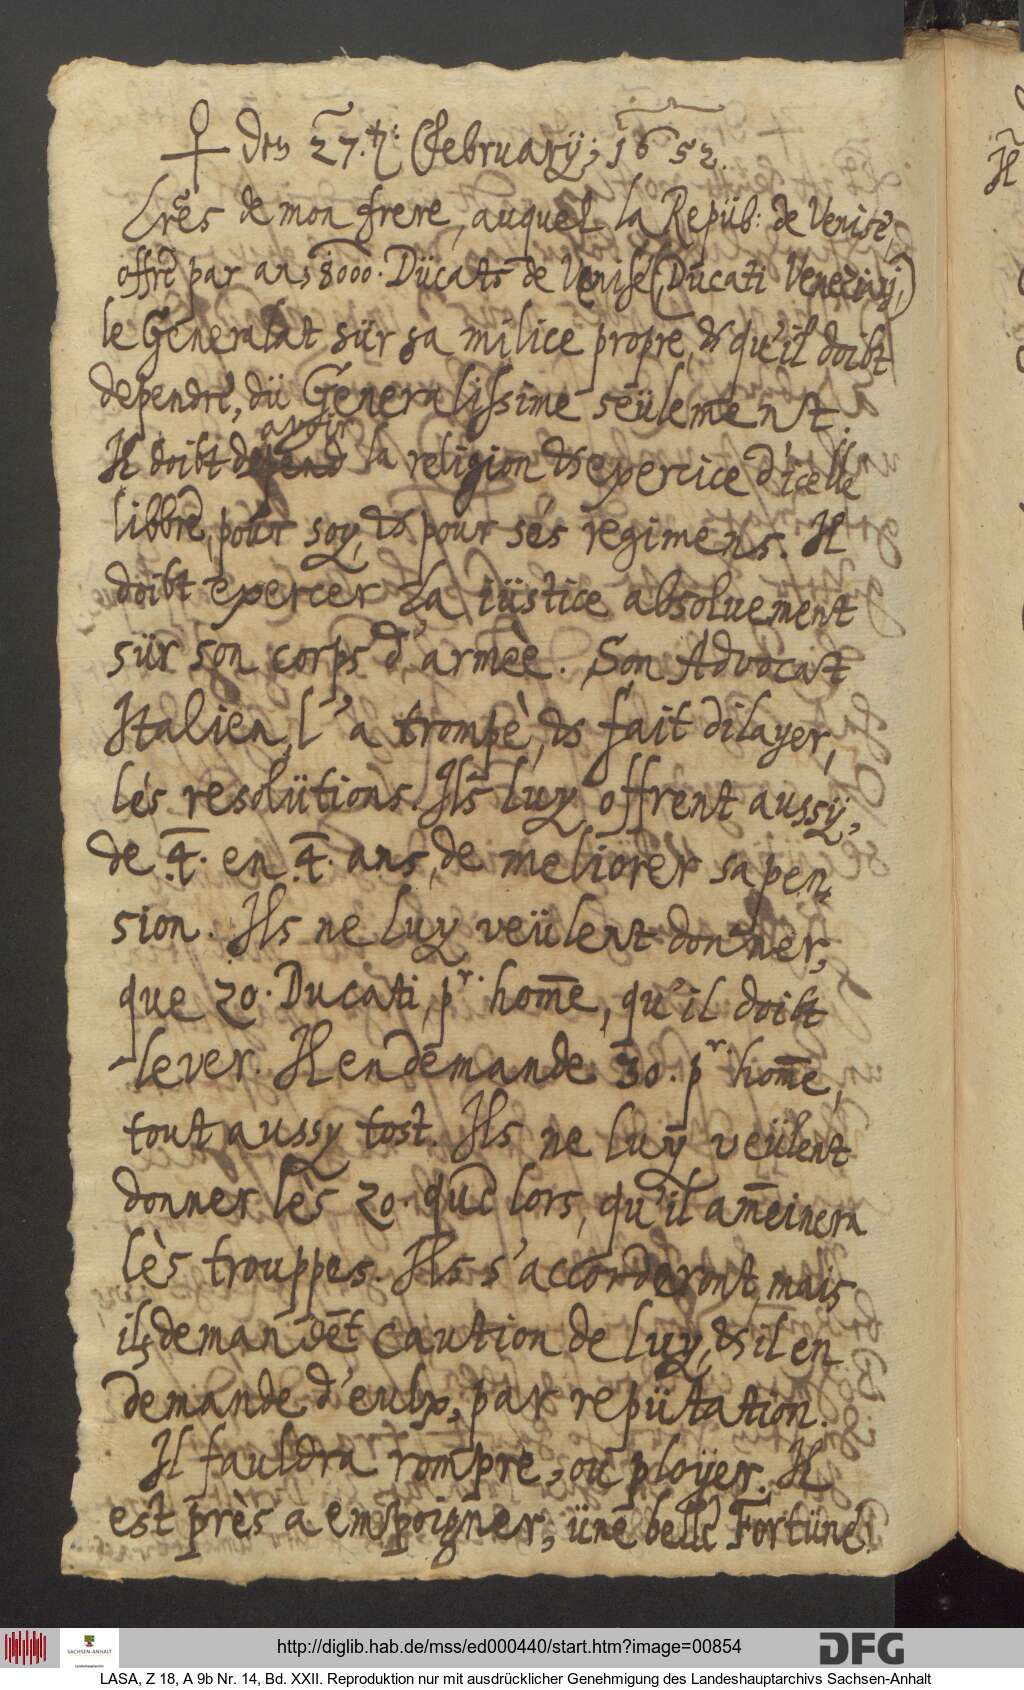 ♀ den 27.ten: February; 1652.
Lrēs de mon frere, auquel la Repüb: de Venise,
offre par ans 8000. Dücats de Venise (Ducati Veneziani,)
le Generalat sür sa milice propre, & qu'il doibt
dependre, dü Generalissime seülement.
avoir
Il doibt la religion & exercice d'icelle
libbre, pour soy, & pour sés regimens. Il
doibt exercer la iüstice absoluement
sür son corps d'armèe. Son Advocat
Italien, l'a trompè, & fait dilayer,
lés resolütions. Ils luy offrent aussy,
de 4. en 4. ans, de meliorer sa pen-
sion. Ils ne luy veülent donner,
que 20. Ducati, pr. hom̄e, qu'il doibt
lever. Il en demande 30. pr hom̄e,
tout aussy tost. Ils ne luy veülent
donner lès 20. que lors, qu'il am̄einera
lès trouppes. Ils s'accorderont, mais
ils demandēt caution de luy, & il en
demande d'eulx, par repütation.
Il fauldra rompre, ou ployer. Il
est près a empoigner, üne belle Fortüne!
http://diglib.hab.de/mss/ed000440/start.htm?image=00854
SACHSEN-ANHALT
DFG
LASA, Z 18, A 9b Nr. 14, Bd. XXII. Reproduktion nur mit ausdrücklicher Genehmigung des Landeshauptarchivs Sachsen-Anhalt